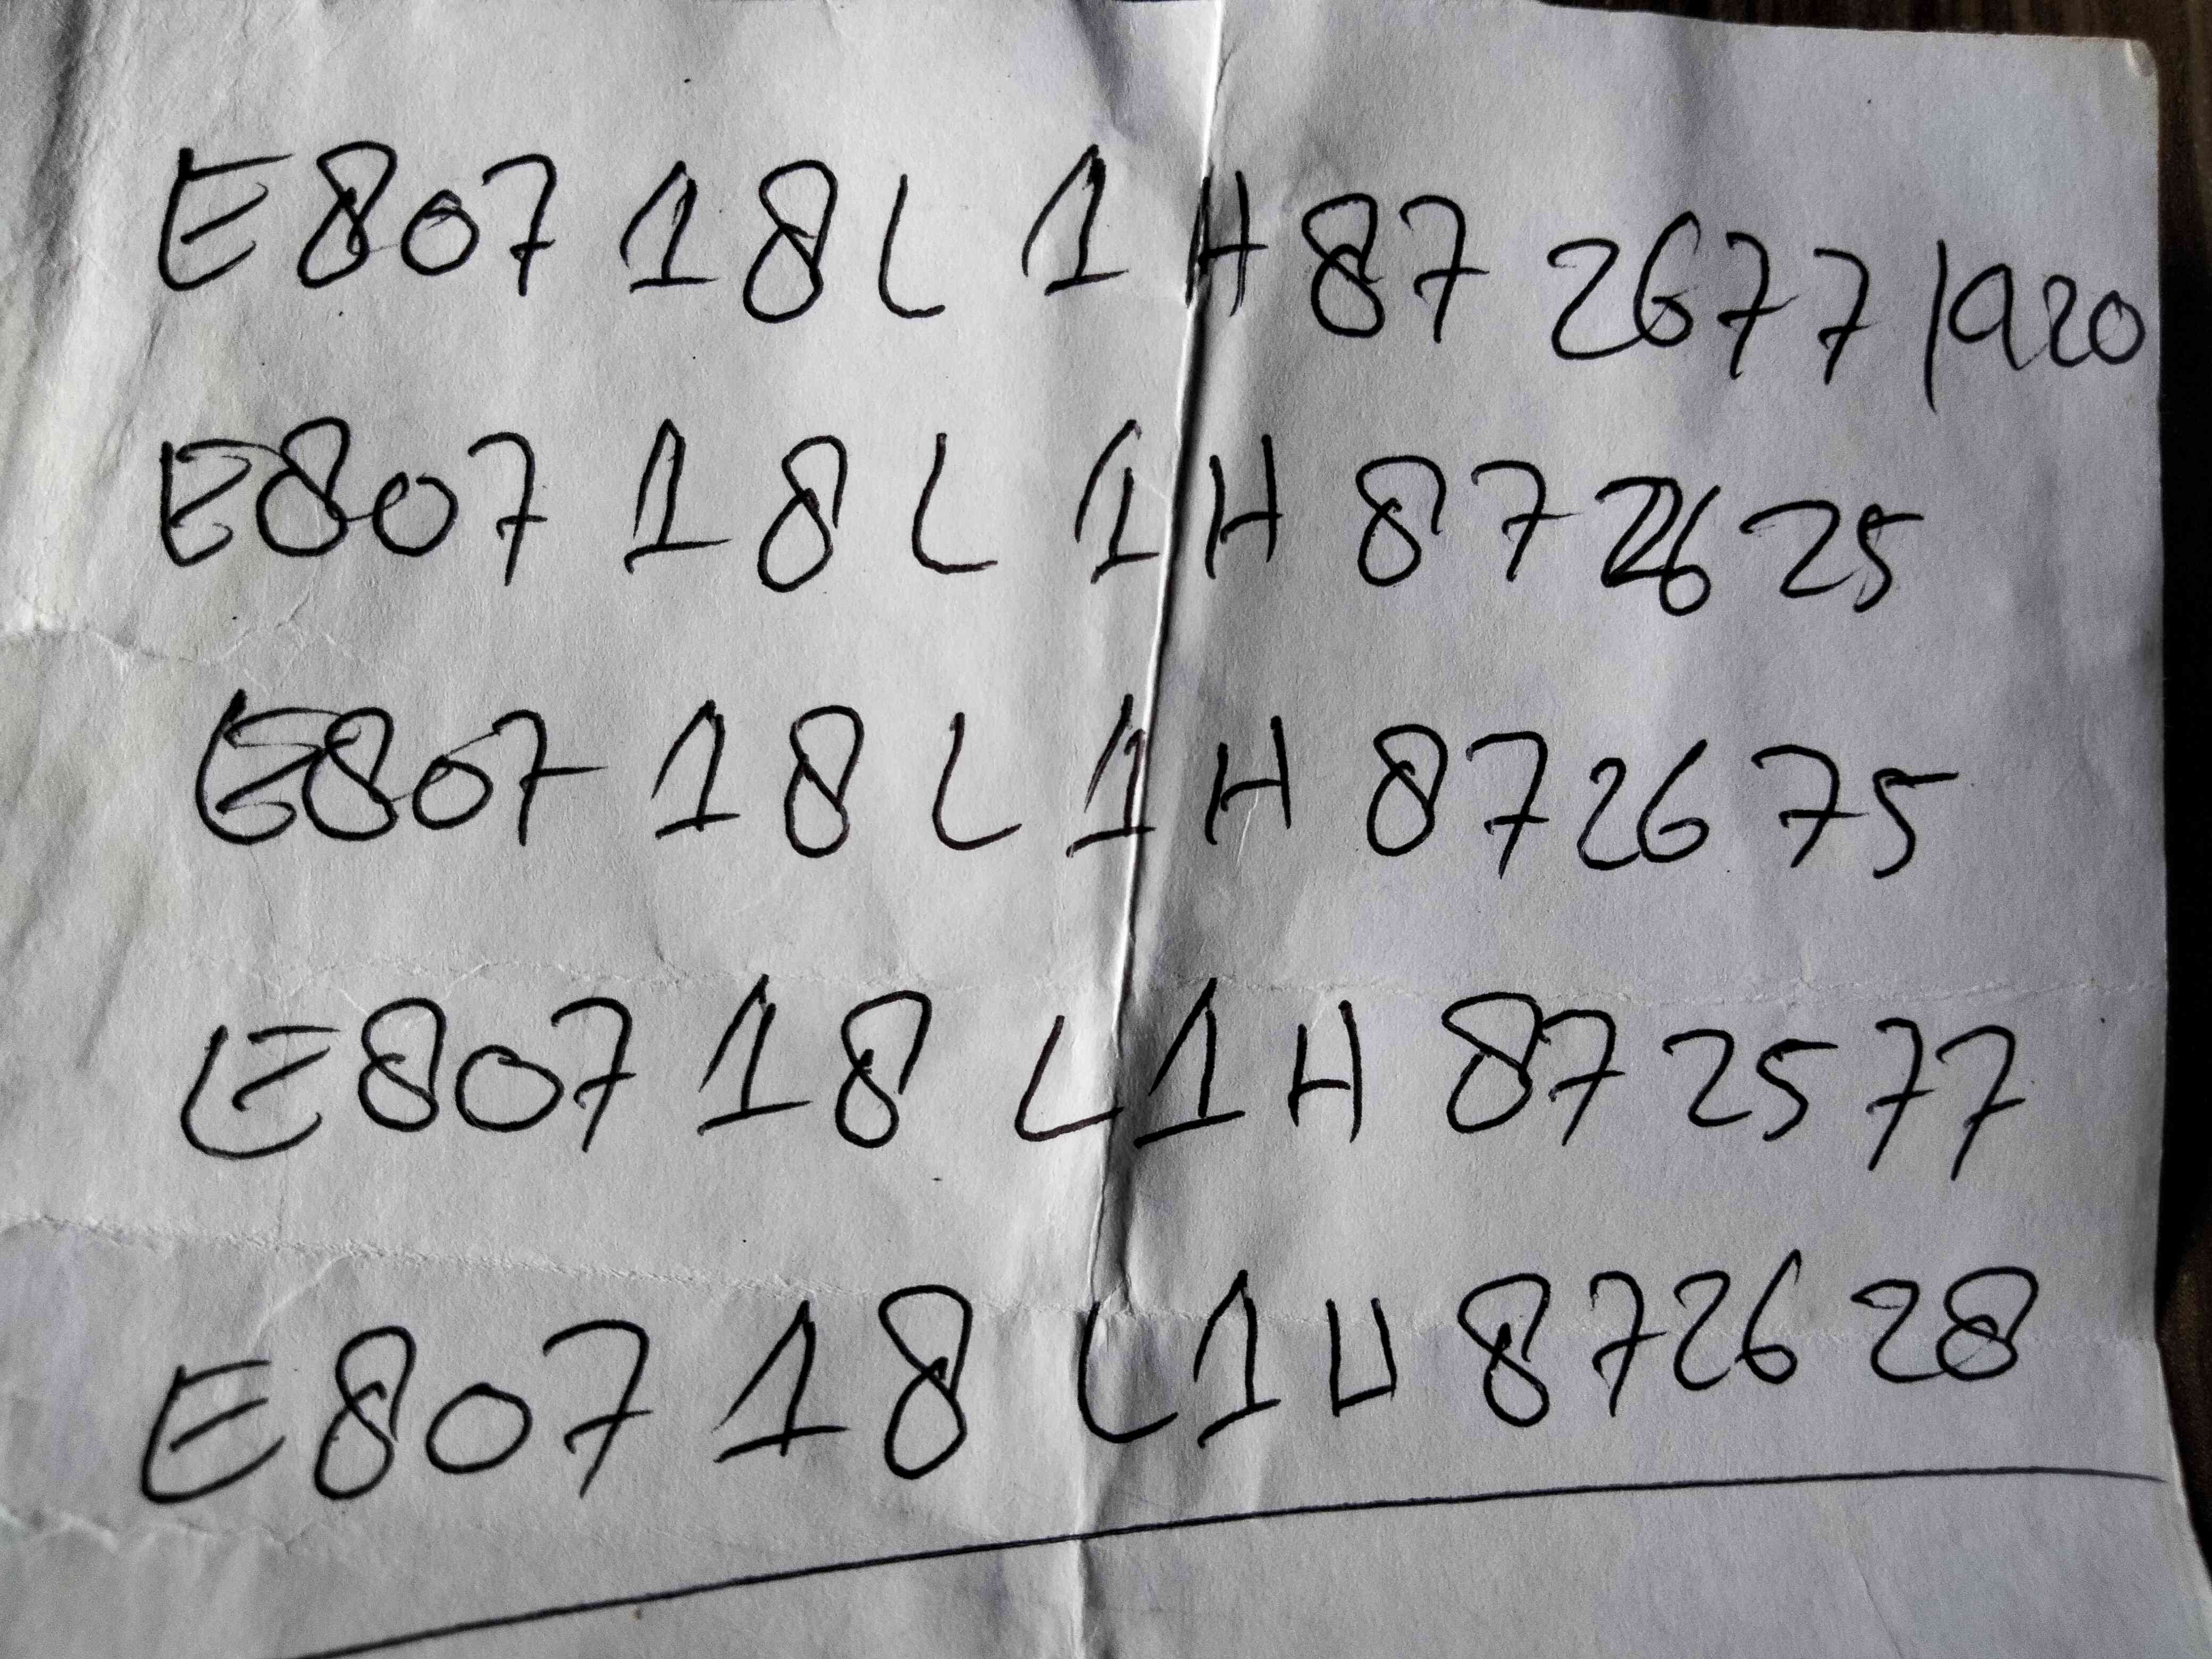 E807 18L 1H87 2677/920
E807 18L 1H 872625
E807 18L 1H 872675
E807 18 L1H 872577
E807 18 L1U 872628